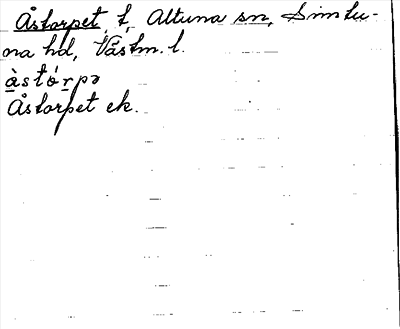 Åstorpet, t, Altuna sn, Simtu-
na hd, Västm. l.
àstórpə
Åstorpet ek.